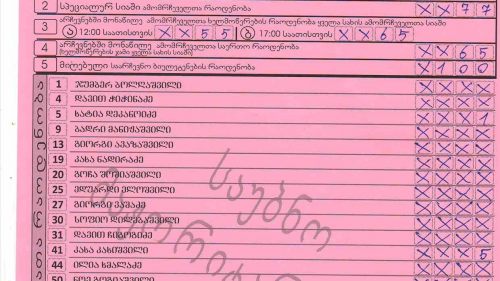 2 სპეციალურ სიაში ამომრჩეველთა რაოდენობა X X 7 7
3 არჩევნებში მონაწილე ამომრჩეველთა ხელმოწერების რაოდენობა ყველა სახის ამომრჩეველთა სიაში
ა 12:00 საათისთვის X X 5 5 ბ 17:00 საათისთვის X X 6 5
4 არჩევნებში მონაწილე ამომრჩეველთა საერთო რაოდენობა X X 6 5
(ხელმოწერების ჯამი ყველა სახის სიაში)
5 მიღებული საარჩევნო ბიულეტენების რაოდენობა X 1 0 0
1 ჯუმბერ ბოლღაშვილი X X X X
4 დავით ჭიჭინაძე X X X X
5 ხატია დეკანოიძე X X X 1
9 ბადრი მანიჟაშვილი X X X X
13 გიორგი ავაზაშვილი X X X X
19 კახა ნადირაძე X X X X
20 გოჩა შოშიაშვილი X X X X
25 ედუარდი ელოშვილი X X X X
27 გიორგი ვაშაძე X X X X
30 სოფიო დილებაშვილი X X X X
31 დავით ჩიგოგიძე X X X X
41 კახა კახიშვილი X X X 5
44 ილია ხმალაძე X X X X
50
საუბნო